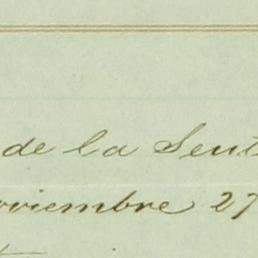 de la Sent
oviembre 27